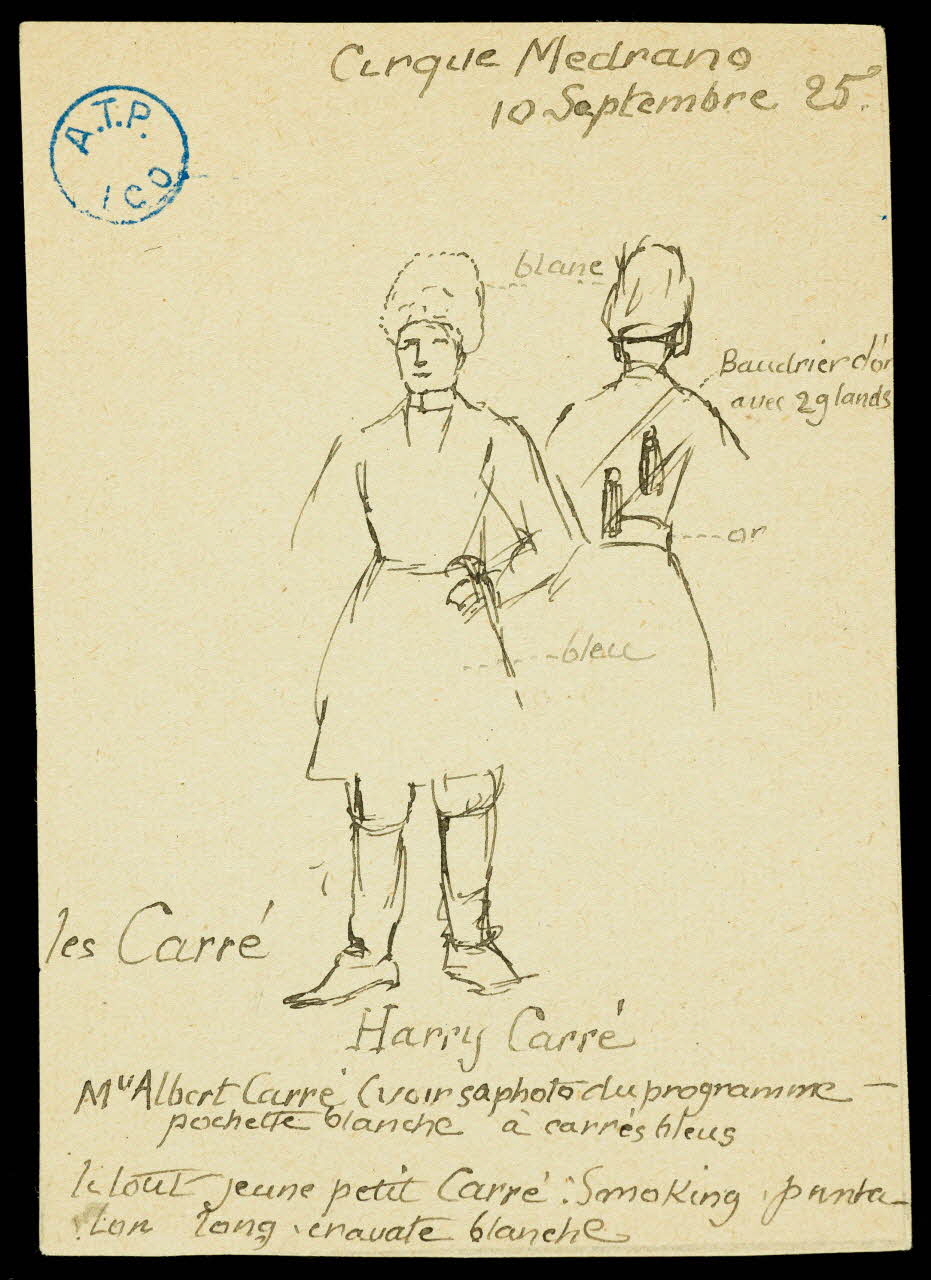 Cirque Medrano
10 Septembre 25.
A.T.P.
ICO
blanc
Baudrier d'or
avec 2 glands
or
bleu
les Carré
Harry Carré
Mr Albert Carré (voir sa photo du programme —
pochette blanche à carrés bleus
le tout jeune petit Carré : Smoking, panta-
lon long, cravate blanche